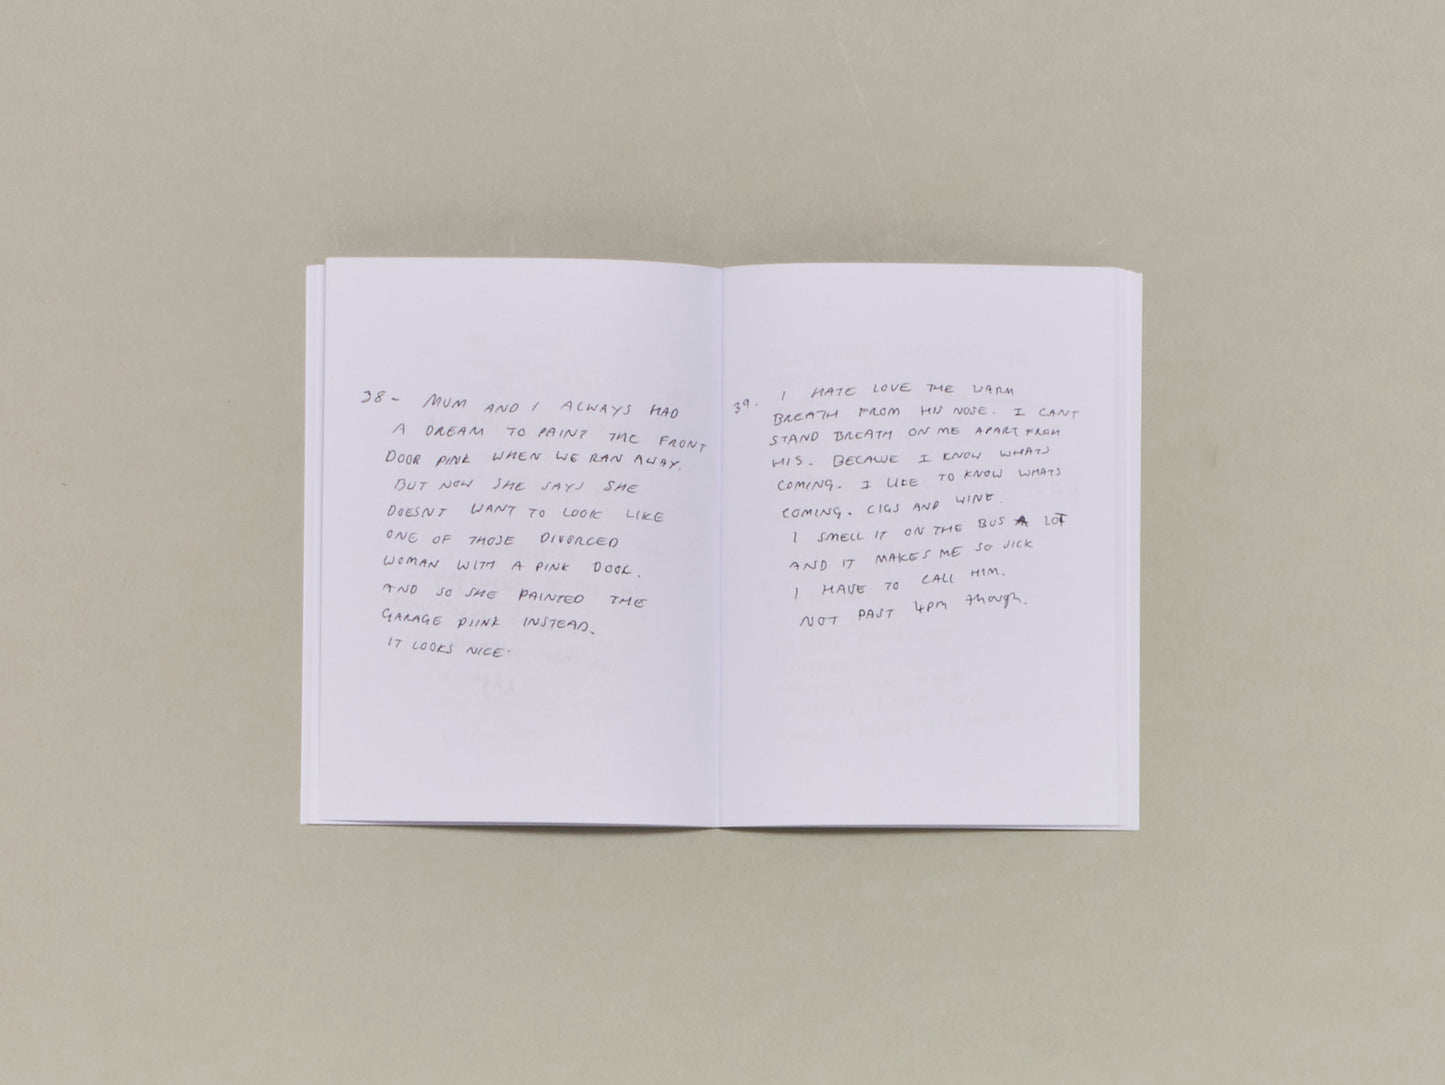 38 - MUM AND I ALWAYS HAD
A DREAM TO PAINT THE FRONT
DOOR PINK WHEN WE RAN AWAY.
BUT NOW SHE SAYS SHE
DOESNT WANT TO LOOK LIKE
ONE OF THOSE DIVORCED
WOMAN WITH A PINK DOOR.
AND SO SHE PAINTED THE
GARAGE PIINK INSTEAD.
IT LOOKS NICE.
39. I HATE LOVE THE WARM
BREATH FROM HIS NOSE. I CANT
STAND BREATH ON ME APART FROM
HIS. BECAUSE I KNOW WHATS
COMING. I LIKE TO KNOW WHATS
COMING. CIGS AND WINE.
I SMELL IT ON THE BUS A LOT
AND IT MAKES ME SO SICK
I HAVE TO CALL HIM.
NOT PAST 4PM though.